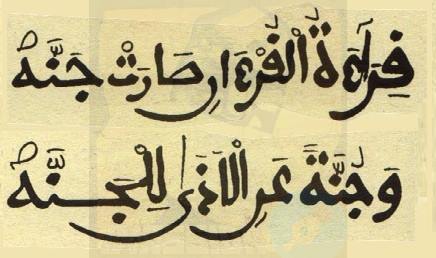 قِرَاءَةُ الْقُرْءَانِ صَارَتْ جَنَّهْ
وَجُنَّةً عَنِ الْأَذَى لِلْجَنَّهْ